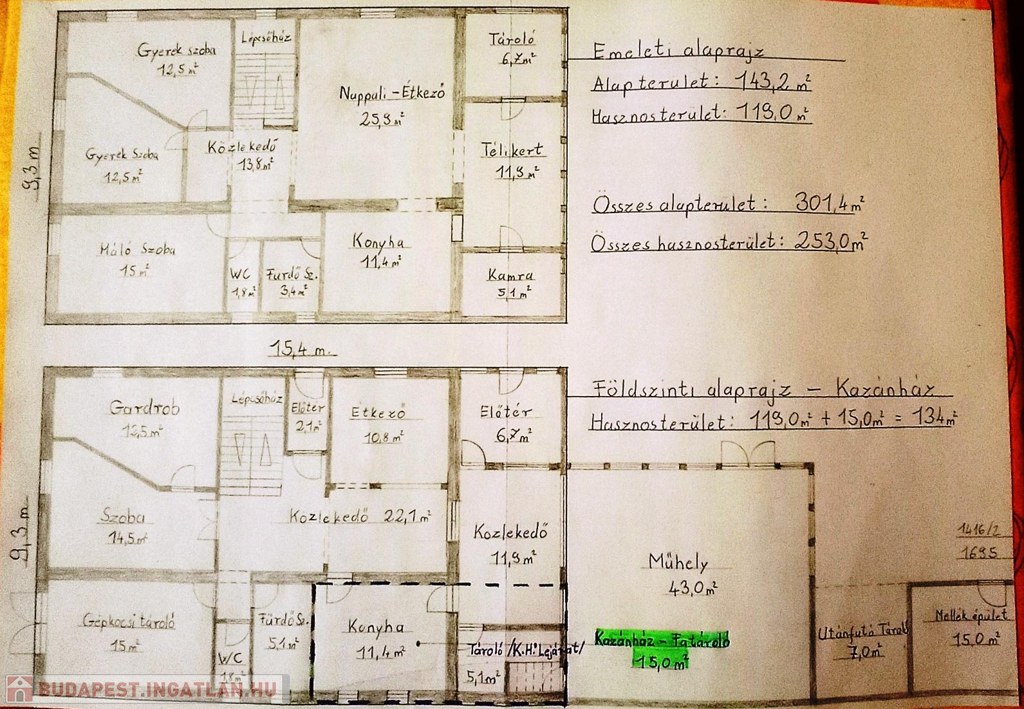 Gyerek szoba
12,5 m²
Lépcsőház
Nappali - Étkező
25,9 m²
Tároló
6,7 m²
Gyerek Szoba
12,5 m²
Közlekedő
13,8 m²
Télikert
11,9 m²
Háló Szoba
15 m²
WC
1,8 m²
Fürdő Sz.
3,4 m²
Konyha
11,4 m²
Kamra
5,1 m²
9,3 m
15,4 m.
Emeleti alaprajz
Alapterület: 143,2 m²
Hasznosterület: 119,0 m²
Összes alapterület: 301,4 m²
Összes hasznosterület: 253,0 m²
Földszinti alaprajz - Kazánház
Hasznosterület: 119,0 m² + 15,0 m² = 134 m²
Gardrob
12,5 m²
Lépcsőház
Előtér
2,1 m²
Étkező
10,8 m²
Előtér
6,7 m²
Szoba
14,5 m²
Közlekedő 22,1 m²
Közlekedő
11,9 m²
Műhely
43,0 m²
1416/2
1695
9,3 m
Gépkocsi tároló
15 m²
WC
1,8 m²
Fürdő Sz.
5,1 m²
Konyha
11,4 m²
Tároló /K.H. Lejárat/
5,1 m²
Kazánház - Fatároló
15,0 m²
Utánfutó Tároló
7,0 m²
Mellék épület
15,0 m²
BUDAPEST.INGATLAN.HU